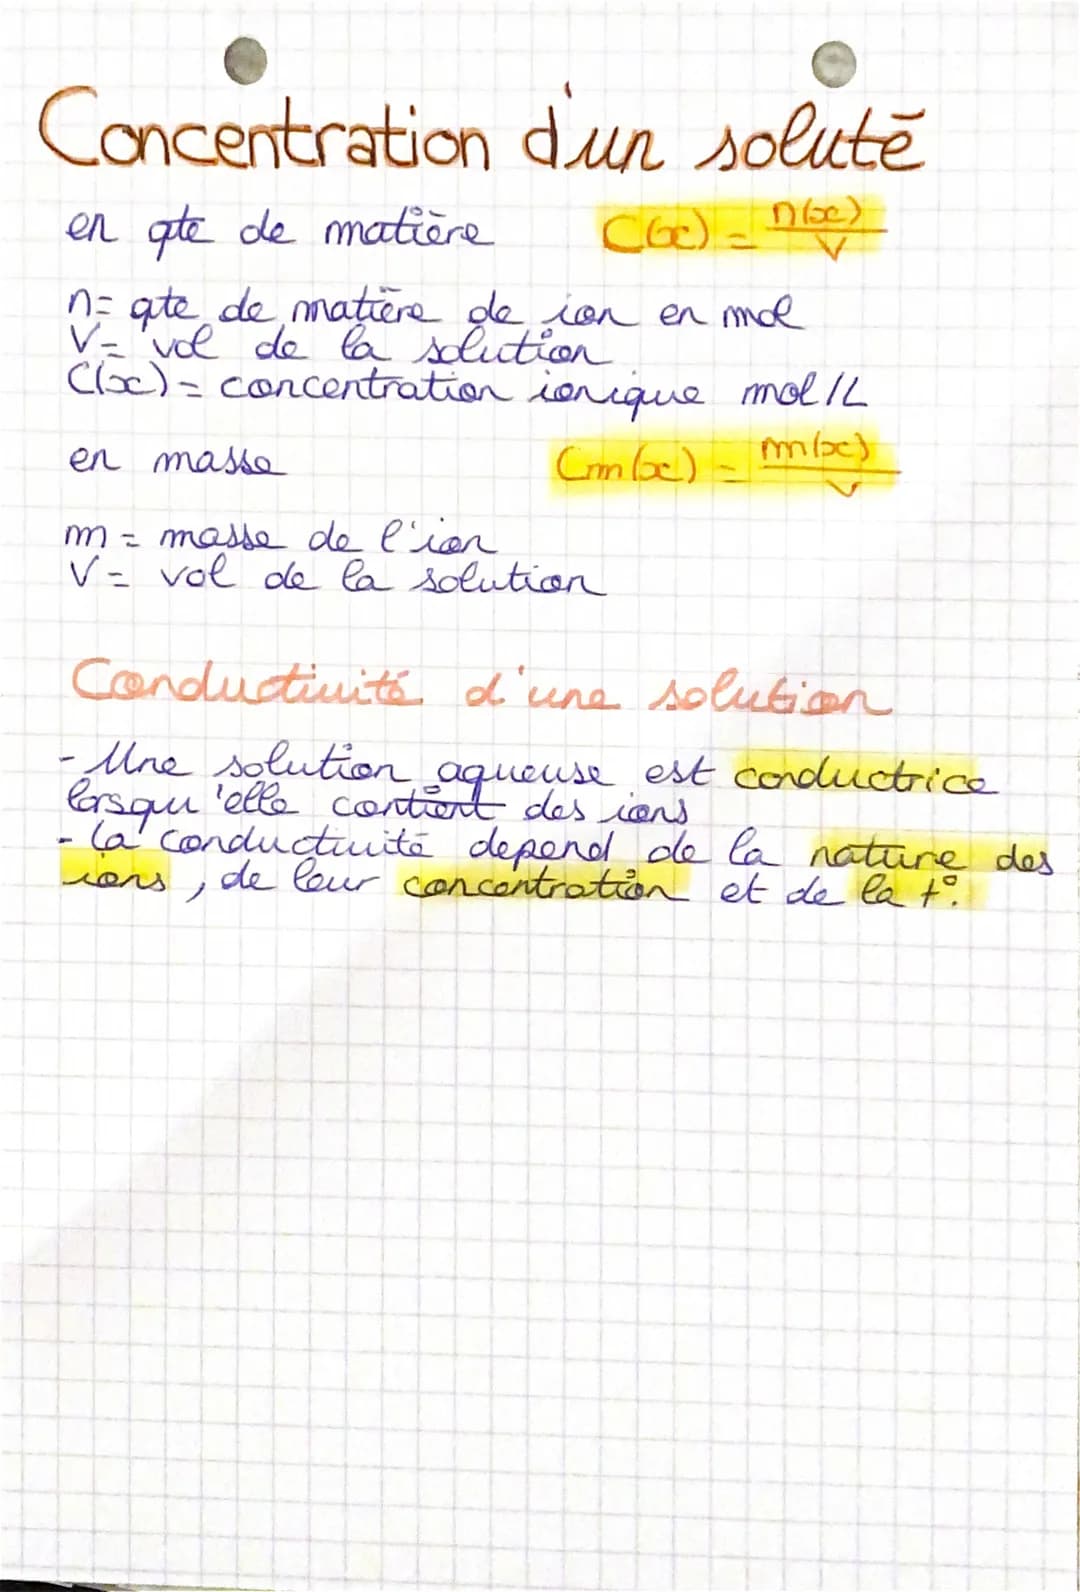 Concentration d'un soluté
en qte de matière C(x) = n(x)/V
n= qte de matière de ion en mol
V= vol de la solution
C(x) = concentration ionique mol/L
en masse Cm(x) = m(x)/V
m = masse de l'ion
V = vol de la solution
Conductivité d'une solution
- Une solution aqueuse est conductrice
lorsqu'elle contient des ions
- la conductivité depend de la nature des
ions, de leur concentration et de la t°.